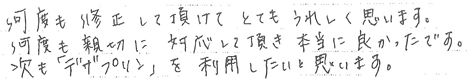 何度も修正して頂けてとてもうれしく思います。
何度も親切に対応して頂き本当に良かったです。
次も「デザプリン」を利用したいと思います。